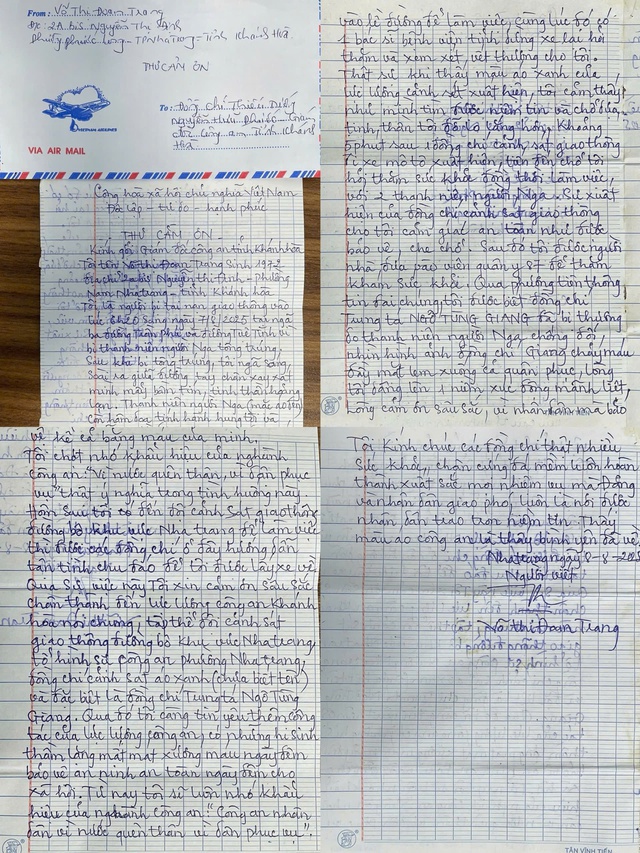 From: Võ Thị Đoan Trang
Đc: 2A bis Nguyễn Thị Định
Phường Phước Long - TP Nha Trang - Tỉnh Khánh Hòa
THƯ CẢM ƠN
VIETNAM AIRLINES
VIA AIR MAIL
To: Đồng Chí Thiếu Tướng
Nguyễn Hữu Phước - Giám
đốc Công an Tỉnh Khánh
Hòa
Cộng hòa xã hội chủ nghĩa Việt Nam
Độc lập - tự do - hạnh phúc
THƯ CẢM ƠN
Kính gởi Giám đốc công an tỉnh Khánh hòa
Tôi tên Võ Thị Đoan Trang Sinh 1972
địa chỉ 2A bis Nguyễn thị Định - Phường
Nam Nha trang - tỉnh Khánh hòa
Tôi là người bị tai nạn giao thông vào
lúc 8h20 sáng ngày 7/8/2025 tại ngã
ba đường Trần phú và đường Tuệ Tĩnh vì
bị thanh niên người Nga tông trúng.
Sau khi bị tông trúng, tôi ngã sang,
soài ra giữa đường, tay chân xay xát
mình mẩy bầm tím, tinh thần hoảng
loạn. Thanh niên người Nga (mặc áo đen)
còn hăm dọa, tính hành hung tôi và
vào lề đường để làm việc, cùng lúc đó có
1 bác sĩ bệnh viện tỉnh dừng xe lại hỏi
thăm và xem xét vết thương cho tôi.
Thật sự khi thấy màu áo xanh của
lực lượng cảnh sát xuất hiện, tôi cảm thấy
như mình tìm được niềm tin và chỗ dựa,
tinh thần tôi đỡ lo lắng hơn. Khoảng
5 phút sau 1 đồng chí cảnh sát giao thông
đi xe mô tô xuất hiện, tiến đến chỗ tôi
hỏi thăm sức khỏe đồng thời làm việc,
với 2 thanh niên người Nga. Sự xuất
hiện của đồng chí cảnh sát giao thông
cho tôi cảm giác an toàn như được
bảo vệ - che chở. Sau đó tôi được người
nhà đưa vào viện quân y 87 để thăm
khám sức khỏe. Qua phương tiện thông
tin đại chúng, tôi được biết đồng chí
Trung tá NGÔ TÙNG GIANG đã bị thương
do thanh niên người Nga, chống đối,
nhìn hình ảnh đồng chí Giang chảy máu
đầy mặt lem xuống cả quân phục, lòng
tôi dâng lên 1 niềm xúc động mãnh liệt,
lòng cảm ơn sâu sắc, vì nhân dân mà bảo
vệ kể cả bằng máu của mình.
Tôi chợt nhớ khẩu hiệu của nghành
công an: "Vì nước quên thân, vì dân phục
vụ" thật ý nghĩa trong tình huống này
Hôm sau tôi có đến đội cảnh Sát giao thông
đường bộ khu vực Nha trang để làm việc
thì được các đồng chí ở đây hướng dẫn
tận tình chu đáo để tôi được lấy xe về
Qua Sự việc này Tôi xin cảm ơn sâu sắc
chân thành đến lực lượng công an Khánh
hòa nói chung, tập thể đội cảnh sát
giao thông đường bộ khu vực Nha trang,
tổ hình sự Công an phường Nha trang,
đồng chí cảnh sát áo xanh (chưa biết tên)
và đặc biệt là đồng chí Trung tá Ngô Tùng
Giang. Qua đó tôi càng tin yêu thêm công
tác của lực lượng công an, có những hi sinh
thầm lặng mất mát xương máu ngày đêm
bảo vệ an ninh an toàn ngày đêm cho
xã hội. Từ nay tôi sẽ luôn nhớ khẩu
hiệu của nghành công an: "Công an nhân
dân vì nước quên thân vì dân phục vụ".
Tôi Kính chúc các đồng chí thật nhiều
sức khỏe, chân cứng đá mềm luôn hoàn
thành xuất sắc mọi nhiệm vụ mà Đảng
và nhân dân giao phó, luôn là nơi được
nhân dân trao trọn niềm tin. Thấy
màu áo công an là thấy bình yên đã về.
Nha trang ngày 8-8-2025
Người viết
Võ Thị Đoan Trang
TÂN VĨNH TIẾN